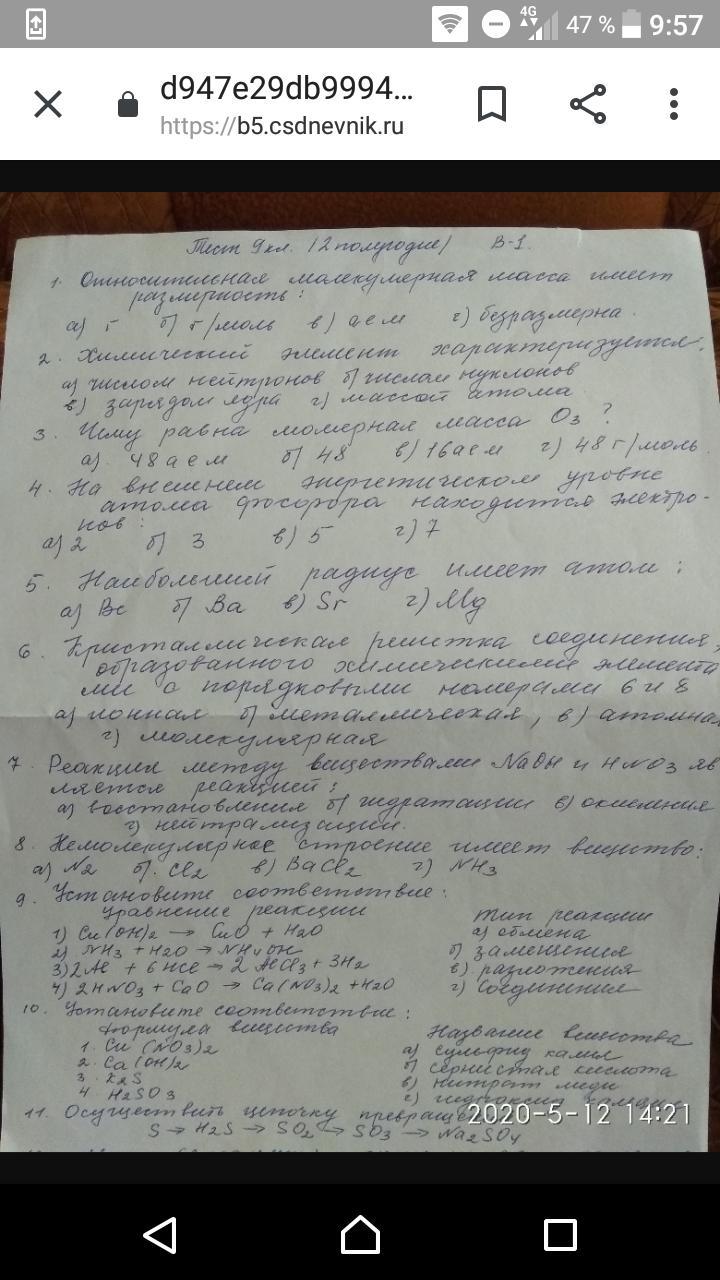 4G 47 % 9:57
d947e29db9994...
https://b5.csdnevnik.ru
Тест 9кл. (2 полугодие) В-1.
1. Относительная молекулярная масса имеет
размерность:
а) г б) г/моль в) а е м г) безразмерна.
2. Химический элемент характеризуется:
а) числом нейтронов б) числом нуклонов
в) зарядом ядра г) массой атома
3. Чему равна молярная масса O3 ?
а) 48 а е м б) 48 в) 16 а е м г) 48 г/моль
4. На внешнем энергетическом уровне
атома фосфора находится электро-
нов:
а) 2 б) 3 в) 5 г) 7
5. Наибольший радиус имеет атом:
а) Be б) Ba в) Sr г) Mg
6. Кристаллическая решетка соединения,
образованного химическими элемента
ми с порядковыми номерами 6 и 8
а) ионная б) металлическая, в) атомная
г) молекулярная
7. Реакция между веществами NaOH и HNO3 яв
ляется реакцией:
а) восстановления б) гидратации в) окисления
г) нейтрализации.
8. Немолекулярное строение имеет вещество:
а) N2 б). Cl2 в) BaCl2 г) NH3
9. Установите соответствие:
Уравнение реакции Тип реакции
1) Cu(OH)2 → CuO + H2O а) обмена
2) NH3 + H2O → NH4OH б) замещения
3) 2Al + 6HCl → 2 AlCl3 + 3H2 в) разложения
4) 2HNO3 + CaO → Ca(NO3)2 + H2O г) соединения
10. Установите соответствие:
Формула вещества Название вещества
1. Cu (NO3)2 а) сульфид калия
2. Ca(OH)2 б) сернистая кислота
3. K2S в) нитрат меди
4. H2SO3 г) гидроксид кальция
11. Осуществить цепочку превращений
2020-5-12 14:21
S → H2S → SO2 → SO3 → Na2SO4